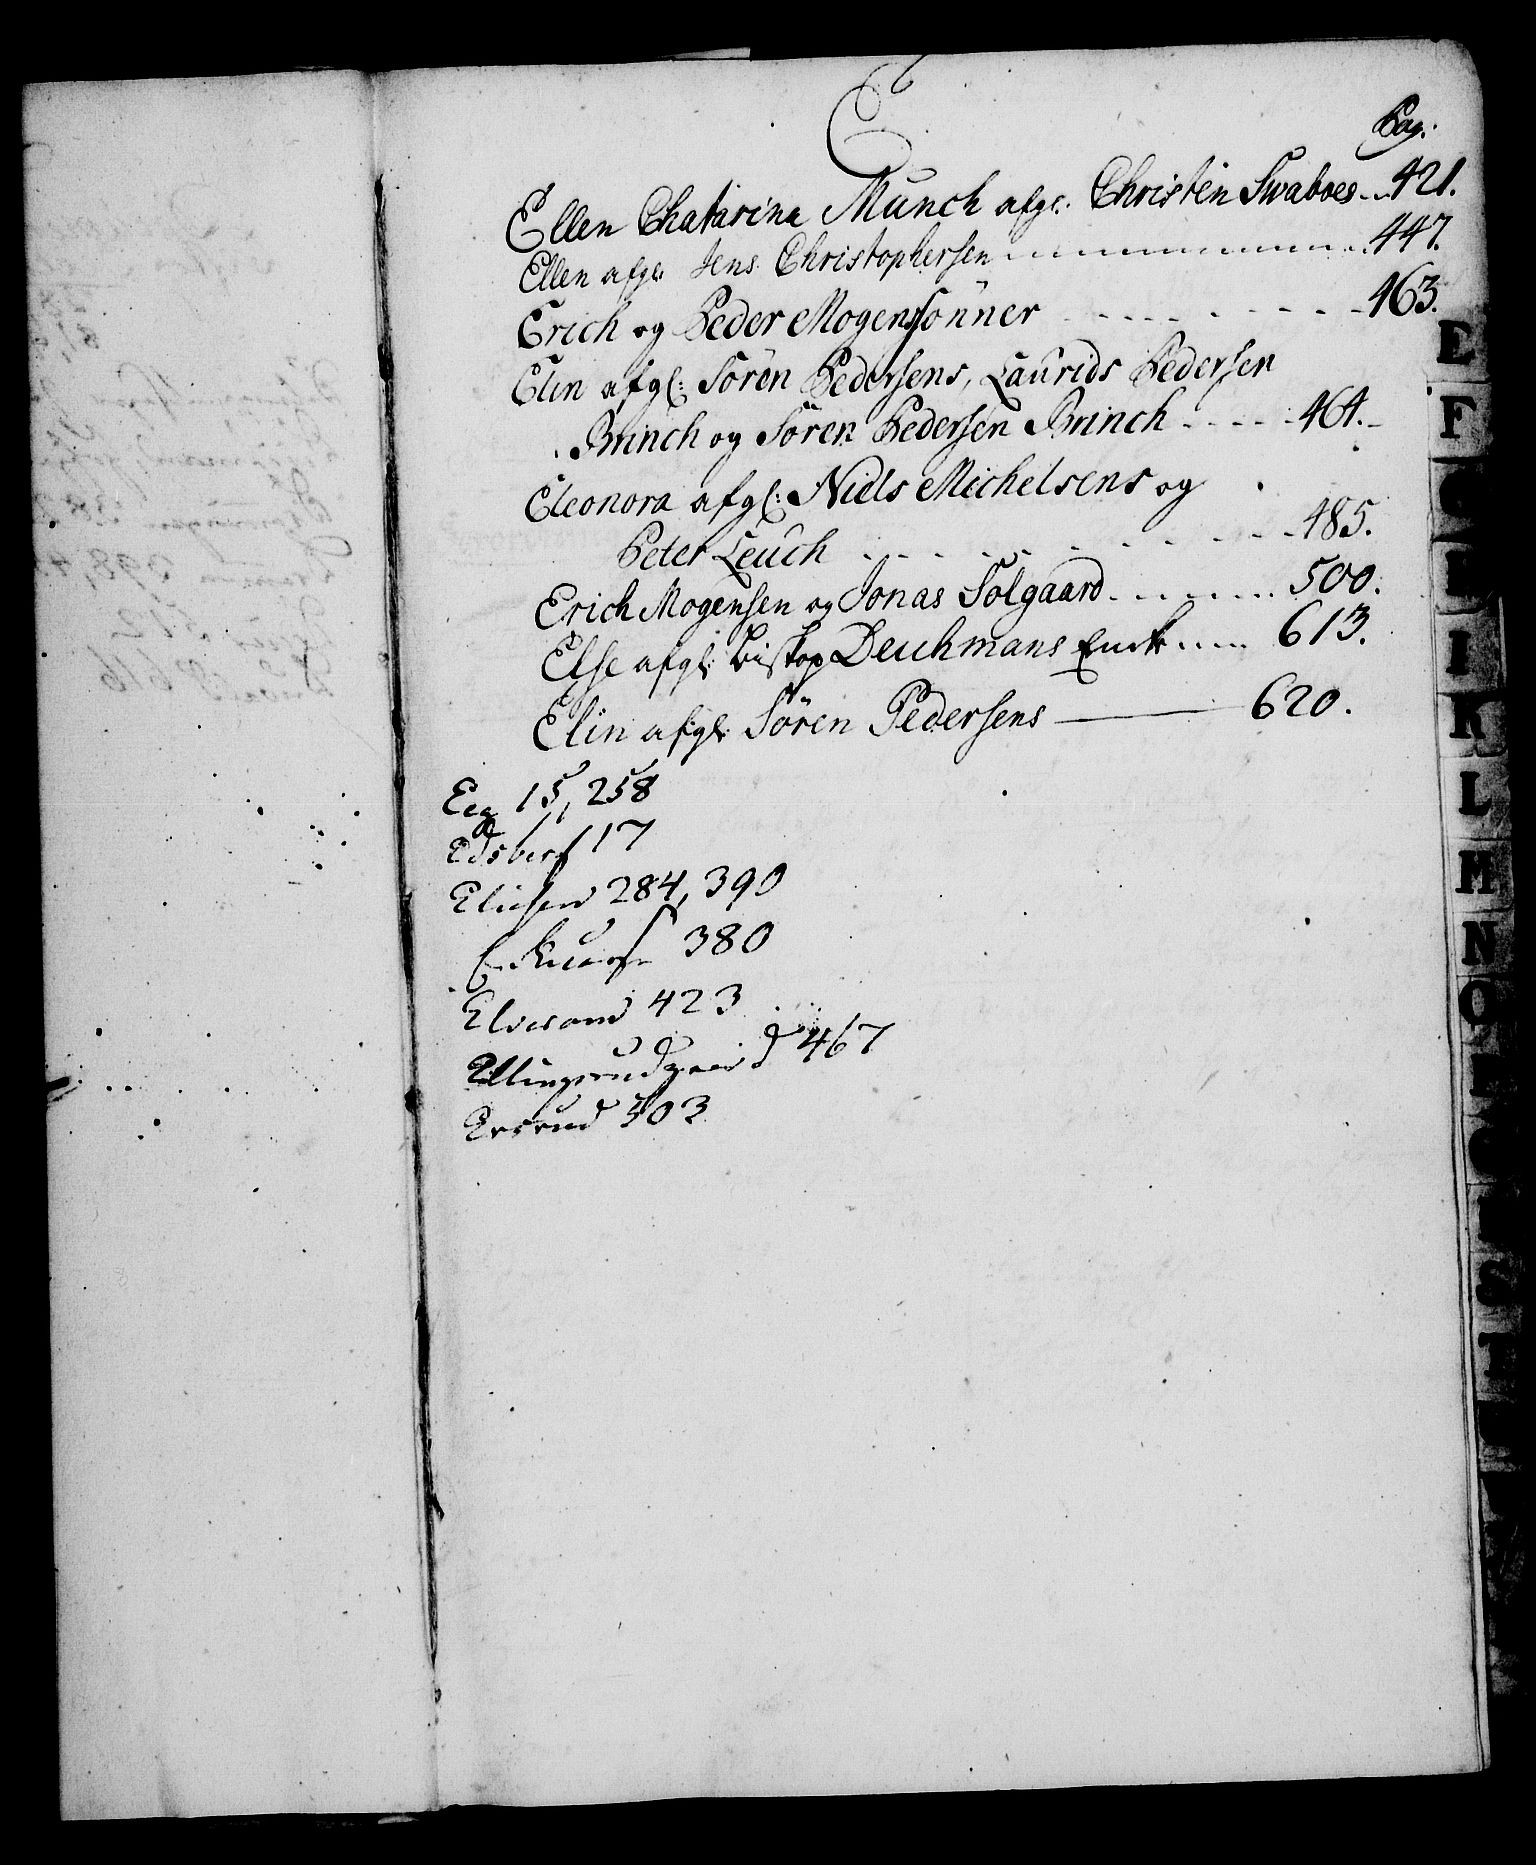 E
Pag:
Ellen Chatarina Munch afgl: Christen Swaboes 421.
Ellen afgl: Jens Christophersen 447.
Erich og Peder Mogensønner 463.
Elin afgl: Sören Pedersens, Laurids Pedersen
Brinch og Sören Pedersen Brinch 464.
Eleonora afgl: Niels Michelsens og
Peter Leuch 485.
Erich Mogensen og Jonas Solgaard 500.
Else afgl: Biskop Deichmans Enck 613.
Elin afgl: Sören Pedersens 620.
Eeg 15, 258
Edsberg 17
Eliesen 284, 390
380
423
Ellingsrudgaard 467
503
E
F
I
K
L
M
N
O